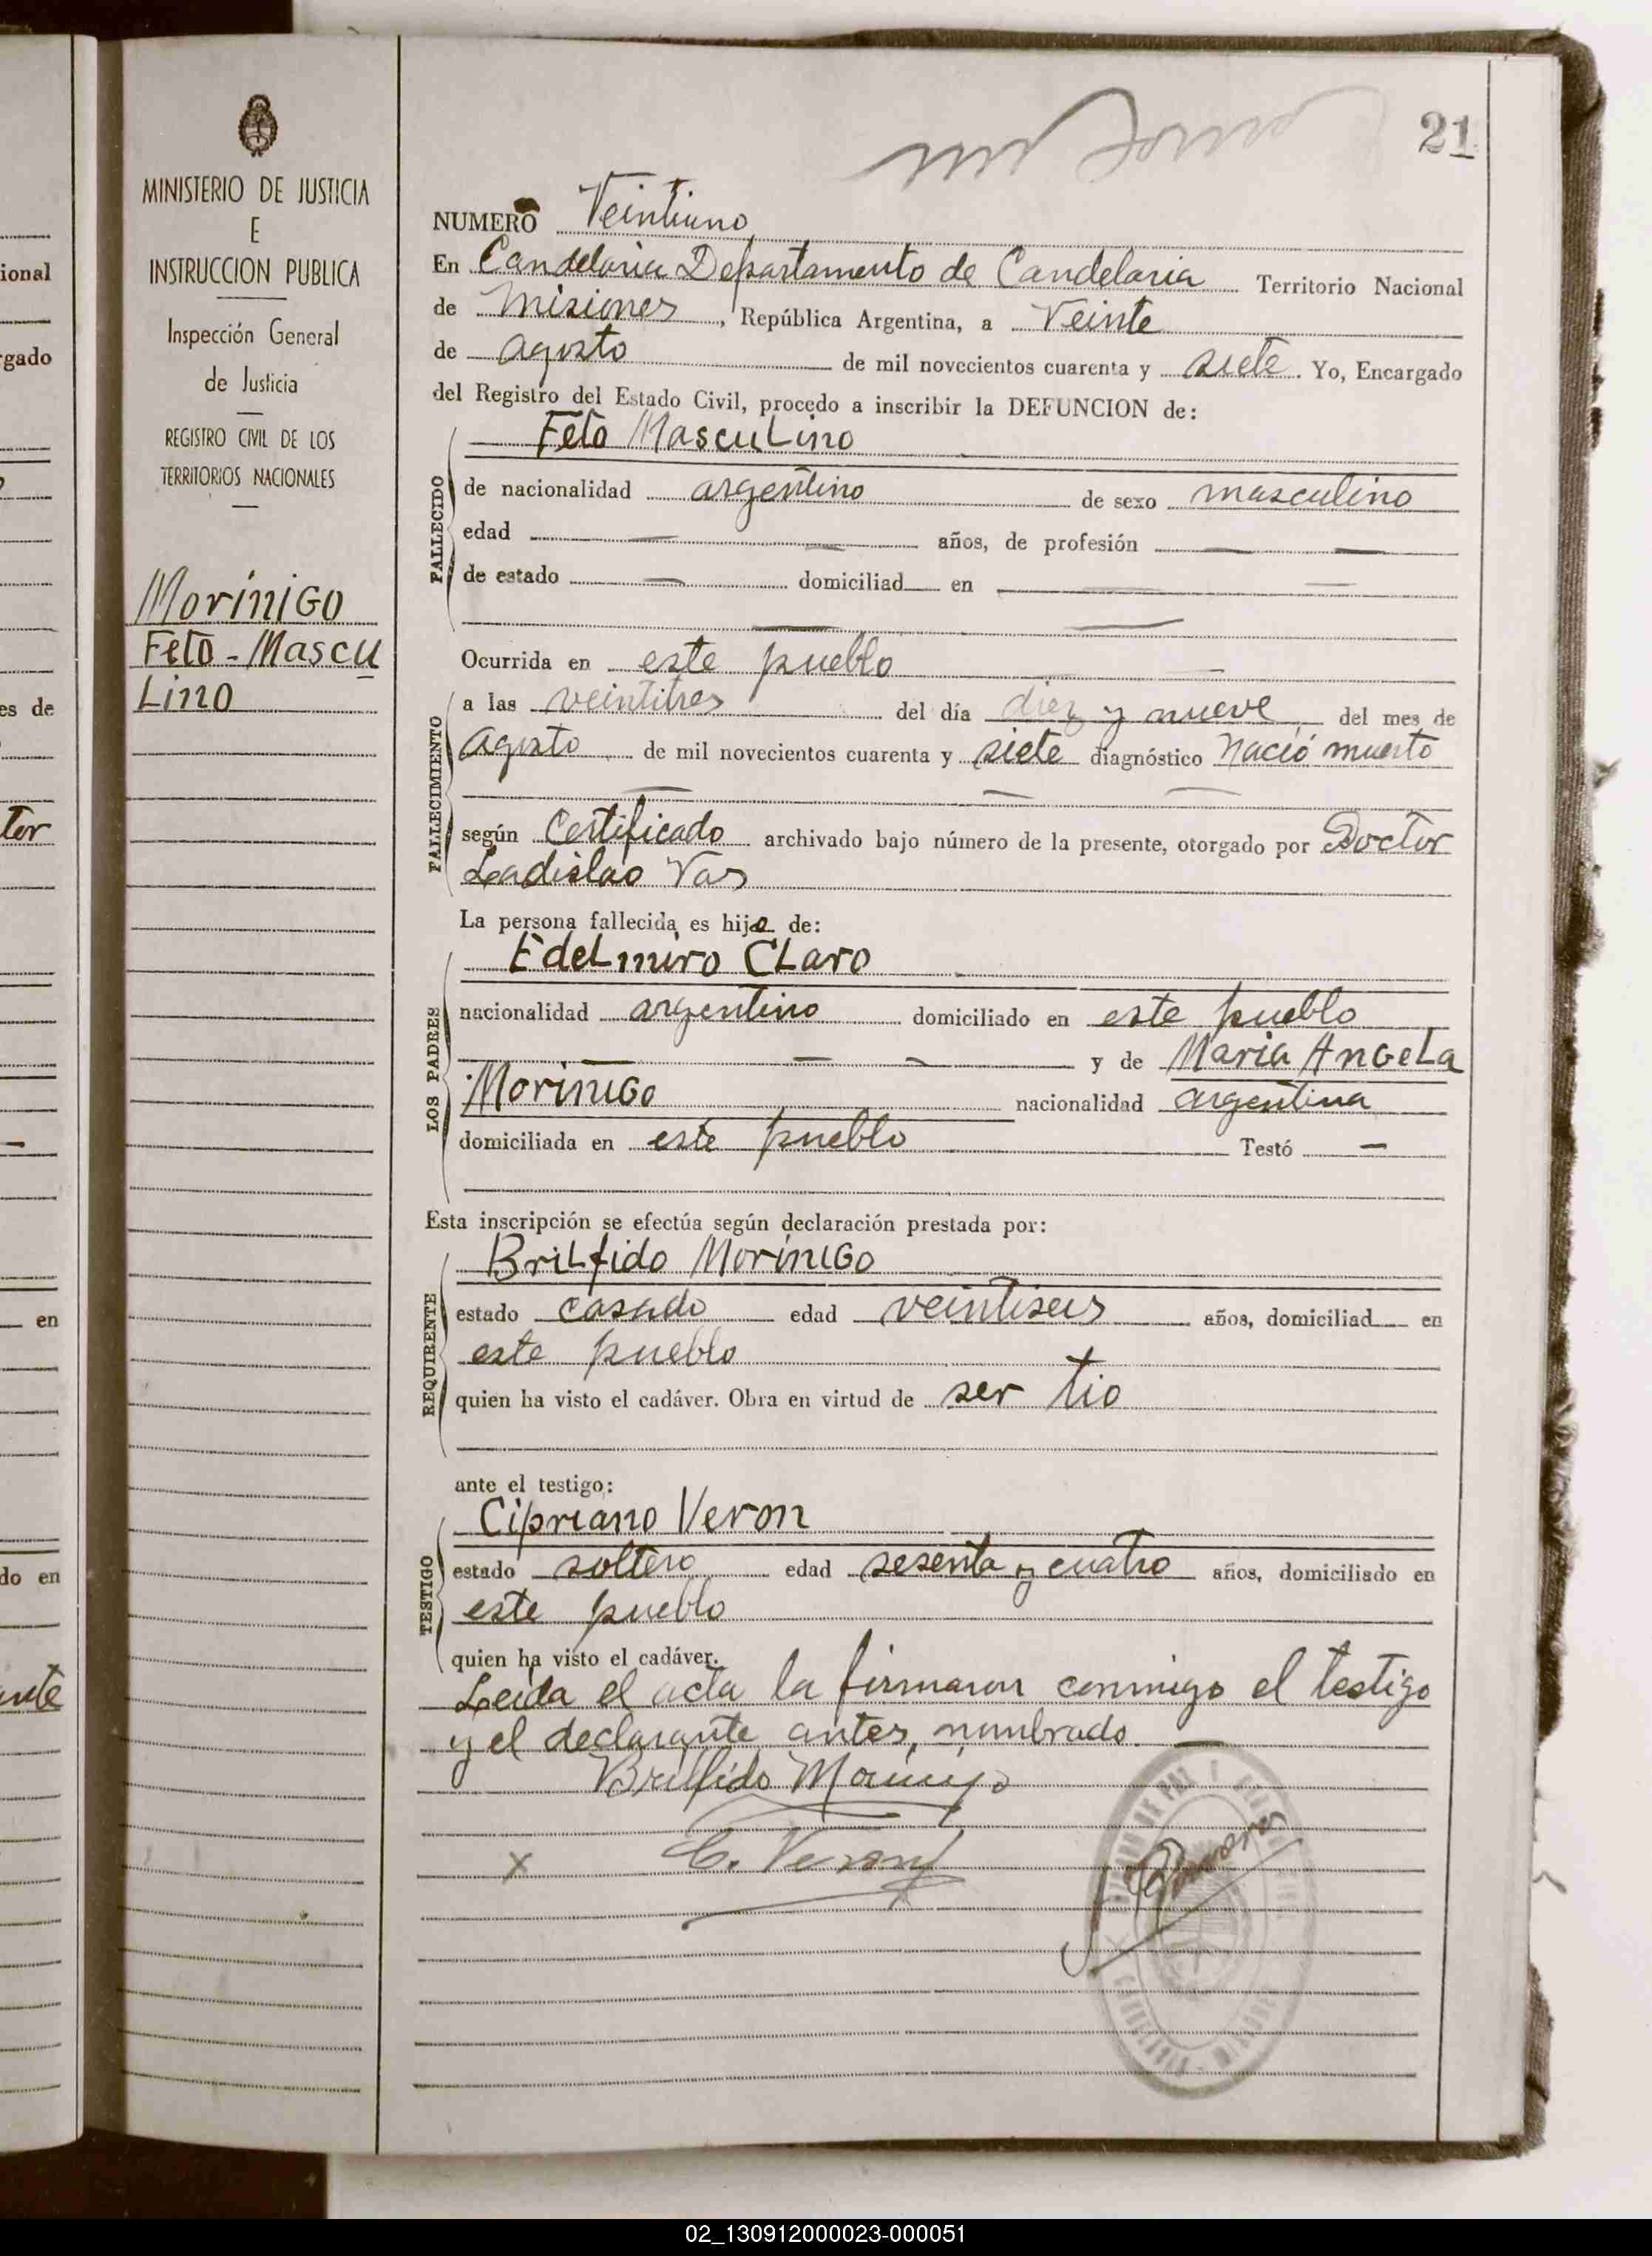 21
MINISTERIO DE JUSTICIA
E
INSTRUCCION PUBLICA
Inspección General
de Justicia
REGISTRO CIVIL DE LOS
TERRITORIOS NACIONALES
Morínigo
Feto - Mascu
Lino
NUMERO Veintiuno
En Candelaria Departamento de Candelaria Territorio Nacional
de Misiones, República Argentina, a Veinte
de agosto de mil novecientos cuarenta y siete. Yo, Encargado
del Registro del Estado Civil, procedo a inscribir la DEFUNCION de:
Feto Masculino
FALLECIDO
de nacionalidad argentino de sexo masculino
edad — — años, de profesión — —
de estado — domiciliad en — —
— —
Ocurrida en este pueblo —
FALLECIMIENTO
a las veintitres del día diez y nueve del mes de
agosto de mil novecientos cuarenta y siete diagnóstico Nació muerto
— — —
según Certificado archivado bajo número de la presente, otorgado por Doctor
Ladislao Vas
La persona fallecida es hijo de:
Edelmiro Claro
LOS PADRES
nacionalidad argentino domiciliado en este pueblo
— — — y de Maria Angela
Morinigo nacionalidad argentina
domiciliada en este pueblo Testó —
Esta inscripción se efectúa según declaración prestada por:
Brilfido Morínigo
REQUIRENTE
estado casado edad veintiseis años, domiciliad en
este pueblo
quien ha visto el cadáver. Obra en virtud de ser tio
ante el testigo:
Cipriano Veron
TESTIGO
estado soltero edad sesenta y cuatro años, domiciliado en
este pueblo
quien ha visto el cadáver.
Leída el acta la firmaron conmigo el testigo
y el declarante antes nombrado. —
Brilfido Morinigo
x C. Veron
ional
rgado
es de
tor
en
do en
02_130912000023-000051